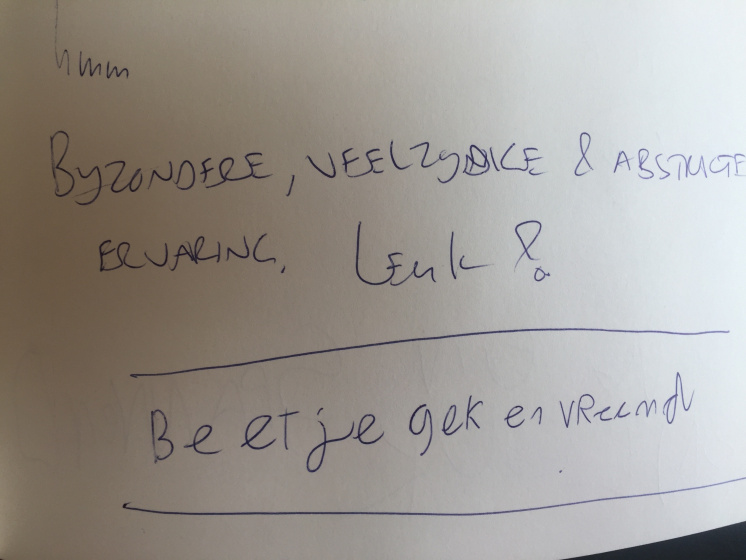 hmm
BYZONDERE, VEELZYDIGE & ABSTRACTE
ERVARING. Leuk!
Beetje gek en vreemd